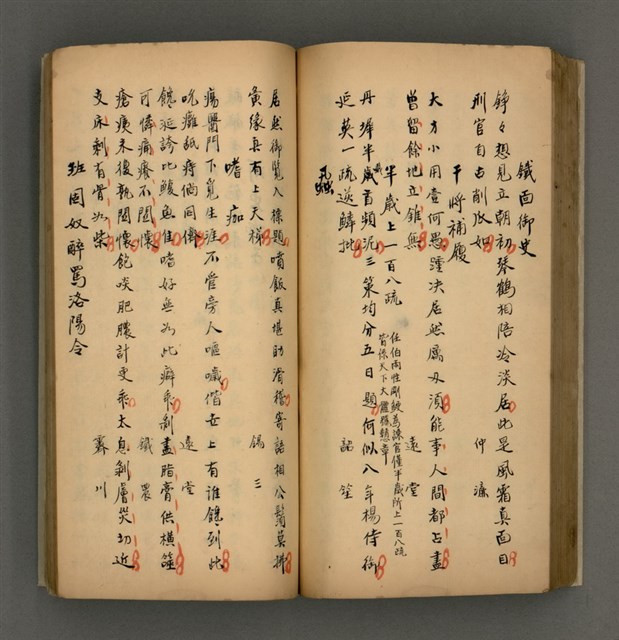 鐵面御史
錚々想見立朝初琴鶴相陪冷淡居此是風霜真面目
刑官自古削瓜如　仲濂
干將補履
大方小用意何愚踵决居然屬刃須能事人間都占盡
曾留餘地立錐無　遠堂
半歲上一百八疏　任伯雨性剛鯁為諫官僅半歲所上一百八疏皆係天下大
丹墀半歲首頻泥三策均分五日題何似八年楊侍御
延英一疏逆鱗批　語笙
蝨
居然御覽入條題噴飯真堪助滑稽寄語相公鬚莫拂
夤緣具有上天梯　錫三
嗜痂
瘍醫門下覓生涯不管旁人嘔噦偕世上有誰饞到此
吮癰舐痔倘同儕　遠堂
饞涎誇比鰒魚佳嗜好無如此癖乖剝盡脂膏供橫噬
可憐痛癢不關懷　鐵農
瘡痍未復孰關懷飽啖肥膿計更乖太息剝膚災切近
支床剩有骨如柴　霽川
班固奴醉罵洛陽令